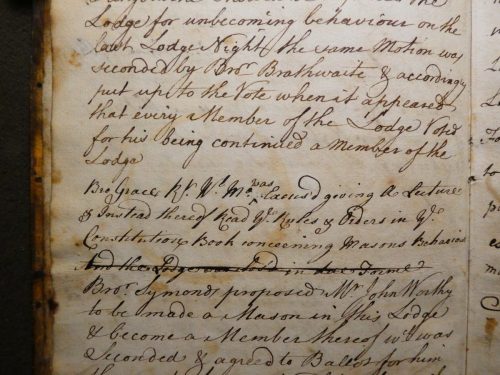 Lodge for unbecoming behaviour on the
last Lodge Night, the same Motion was
seconded by Bror. Brathwaite & accordingly
put up to the Vote when it appeared
that every Member of the Lodge Voted
for his being continued a Member of the
Lodge
Bro Grace Rt. Wl. Mr. was Excus'd giving a Lecture
& Instead thereof Read ye. Rules & Orders in ye.
Constitution Book concerning Masons Behavior
And the Lodge was Clos'd in due Forme
Bror. Symonds proposed Mr. John Worthy
to be made a Mason in this Lodge
& become a Member thereof wch. was
Seconded & agreed to Ballot for him